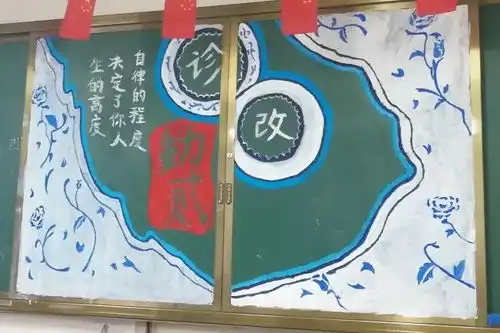 自律的程度
决定了你人
生的高度
诊
改
勤贰